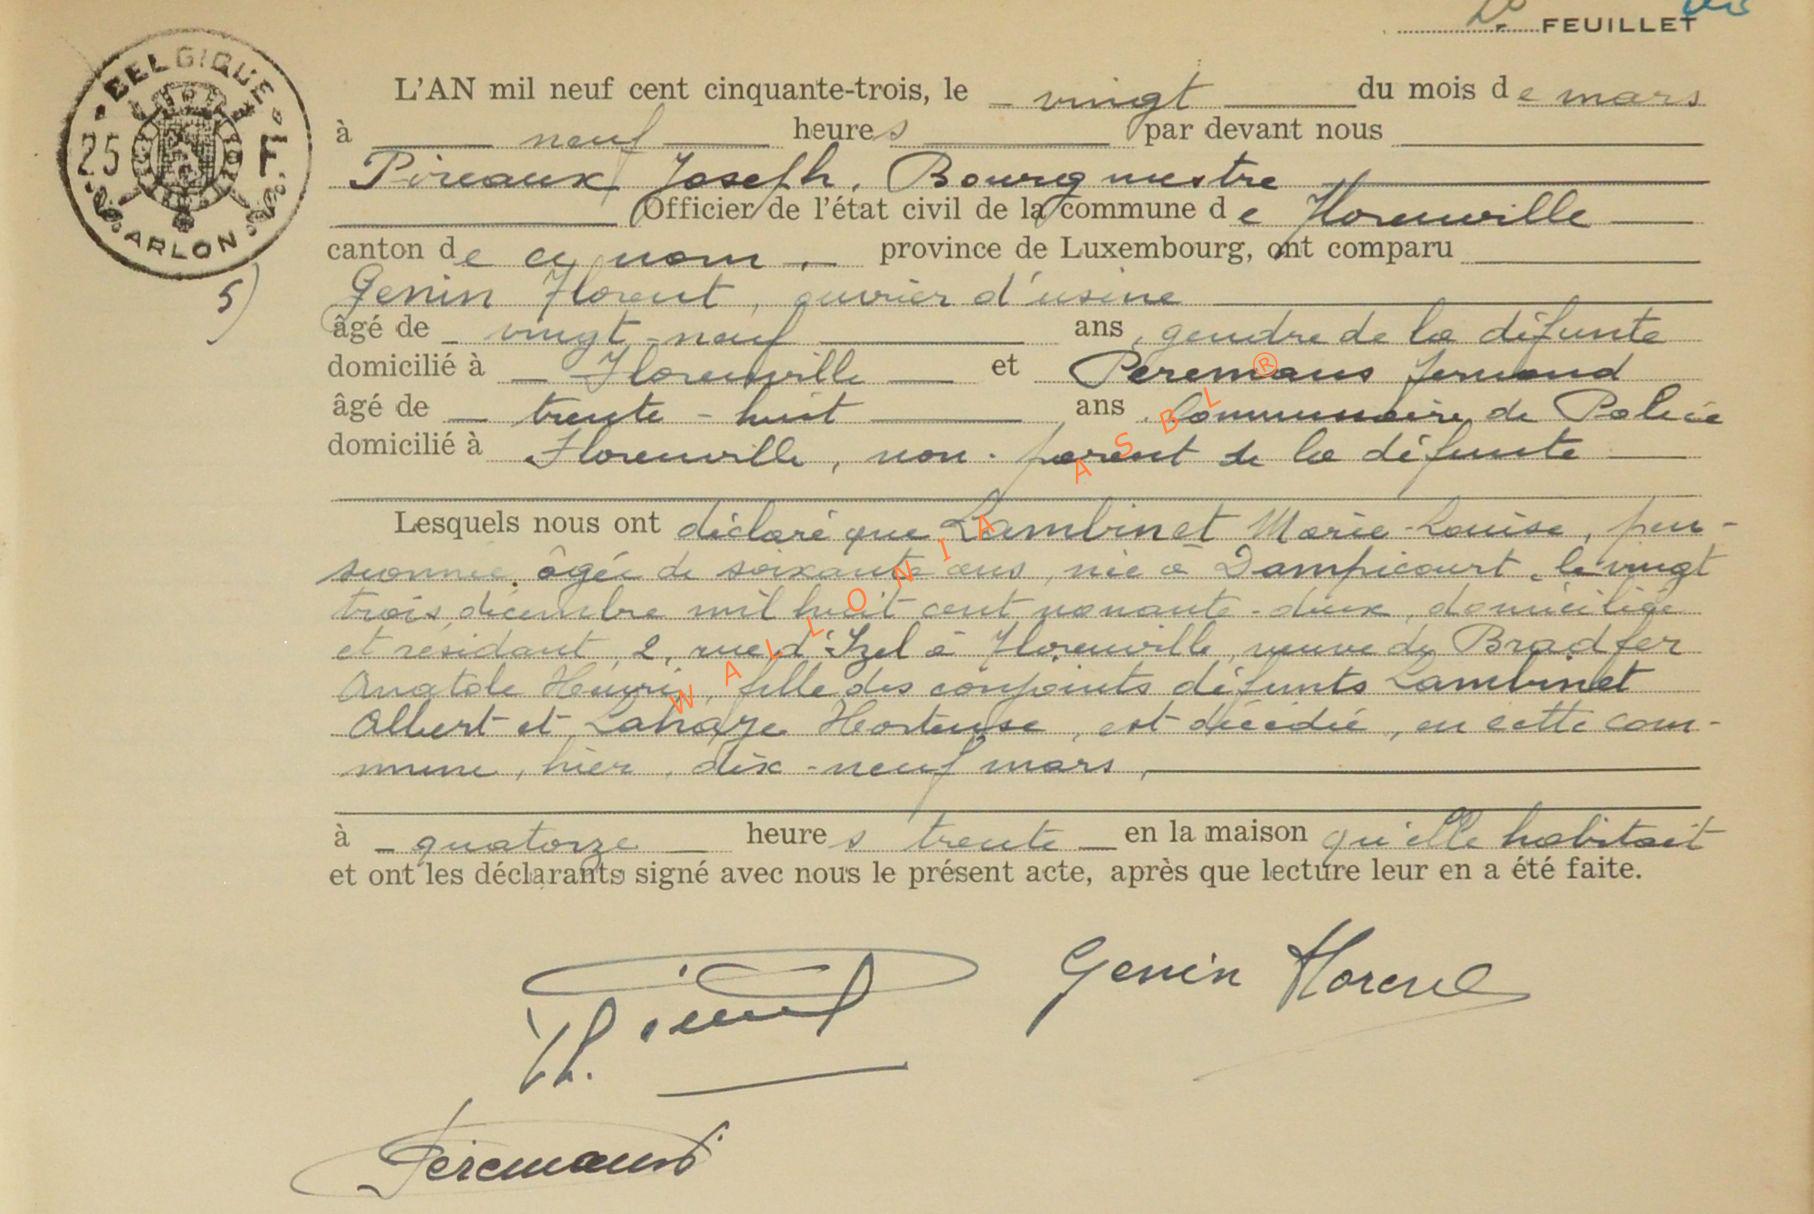 FEUILLET
BELGIQUE
25 F.
ARLON
5)
L'AN mil neuf cent cinquante-trois, le vingt du mois de mars
à neuf heures par devant nous
Pireaux Joseph, Bourgmestre
Officier de l'état civil de la commune de Florenville
canton de ce nom, province de Luxembourg, ont comparu
Genin Florent, ouvrier d'usine
âgé de vingt-neuf ans, gendre de la défunte
domicilié à Florenville et Peremans Fernand
âgé de trente-huit ans, Commissaire de Police
domicilié à Florenville, non-parent de la défunte
Lesquels nous ont déclaré que Lambinet Marie-Louise, pen-
sionnée, âgée de soixante ans, née à Dampicourt, le vingt
trois décembre mil huit cent nonante-deux, domiciliée
et résidant, 2, rue d'Izel à Florenville, veuve de Bradfer
Anatole Henri, fille des conjoints défunts Lambinet
Albert et Lahaye Hortense, est décédée, en cette com-
mune, hier, dix-neuf mars,
à quatorze heures trente en la maison qu'elle habitait
et ont les déclarants signé avec nous le présent acte, après que lecture leur en a été faite.
Genin Florent
Peremans
WALLONIA ASBL ®